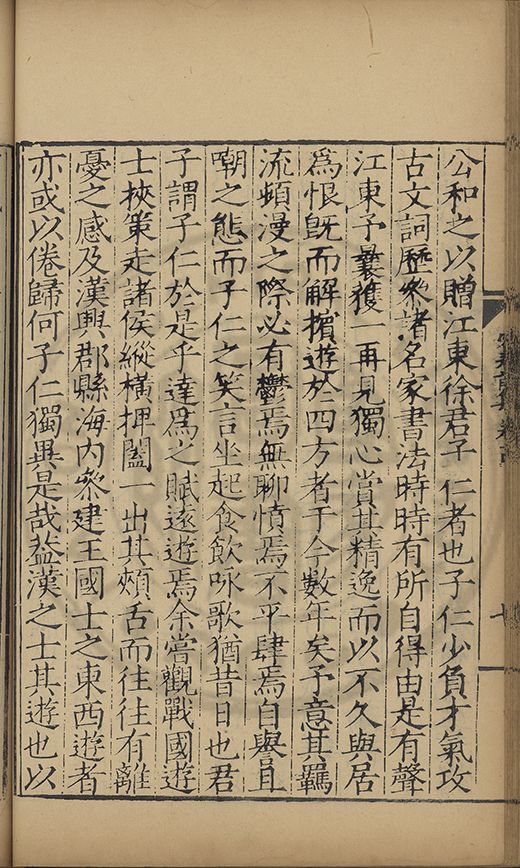 公和之以贈江東徐君子仁者也子仁少負才氣攻
古文詞歷衆諸名家書法時時有所自得由是有聲
江東予曩獲一再見獨心賞其精逸而以不久與居
爲恨旣而解擯遊於四方者于今數年矣予意其羈
流頻漫之際必有鬱焉無聊憤焉不平肆焉自譽且
嘲之態而子仁之笑言坐起食飲咏歌猶昔日也君
子謂子仁於是乎達爲之賦逺遊焉余嘗觀戰國遊
士挾策走諸侯縱橫押闔一出其頰舌而往往有離
憂之感及漢興郡縣海内衆建王國士之東西遊者
亦或以倦歸何子仁獨異是哉葢漢之士其遊也以